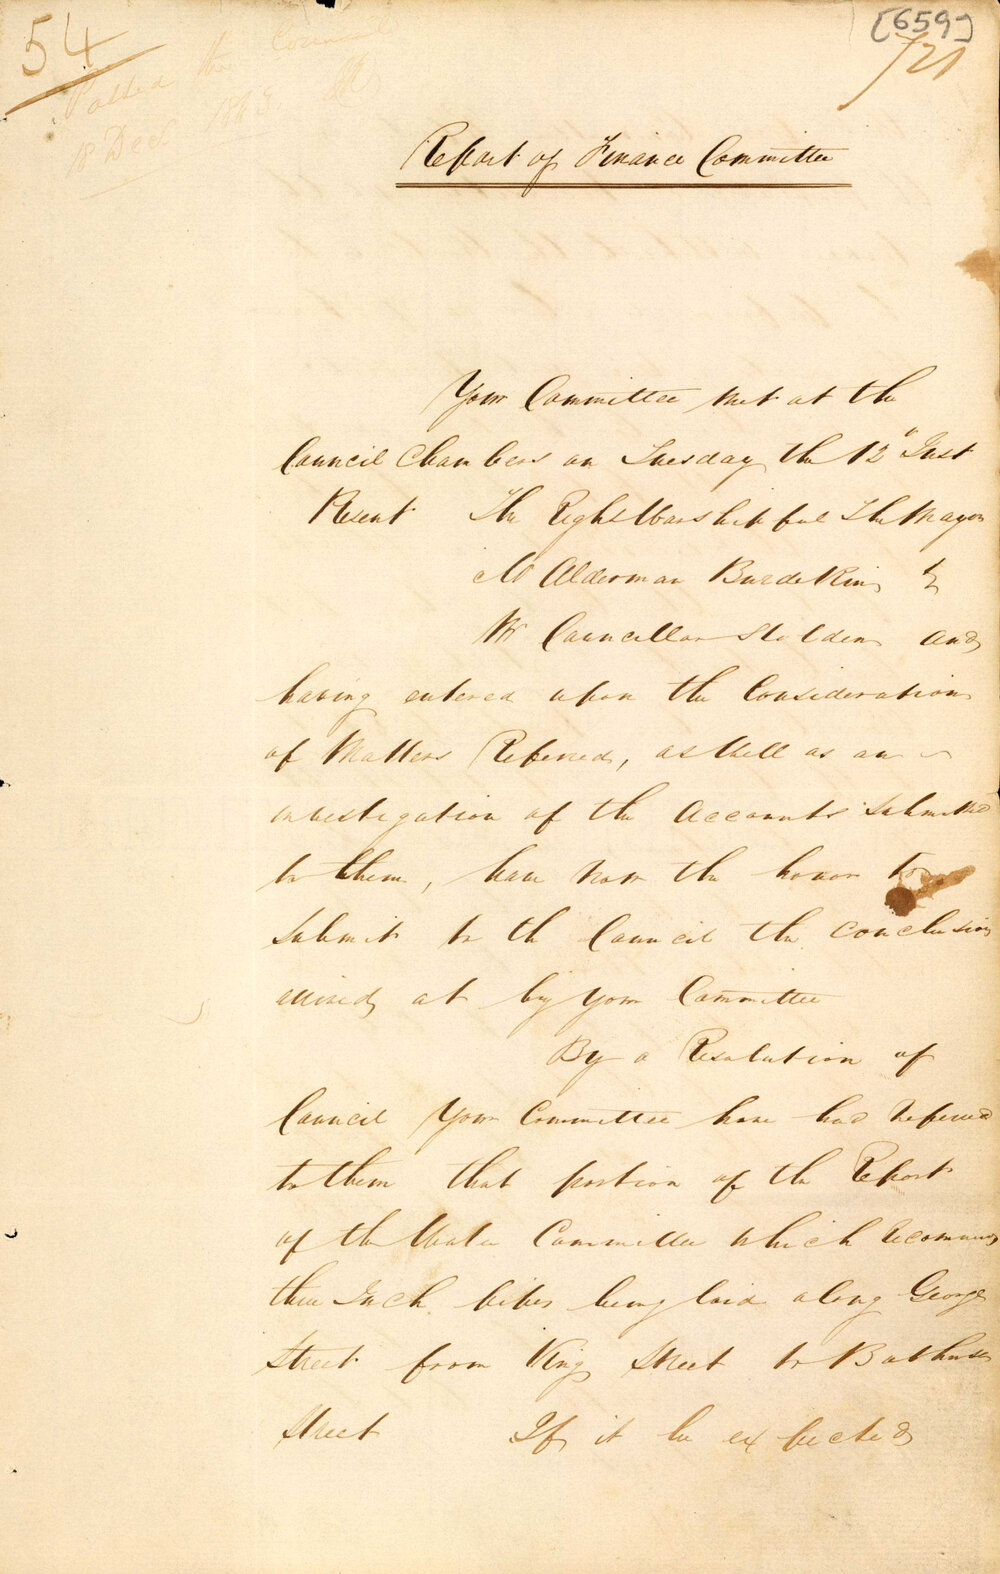 54
[659]
721
Passed the Council
18 Dec 1843
Report of Finance Committee
Your Committee met at the
Council Chambers on Tuesday the 12" Inst
Present The Right Worshipful The Mayor
Mr Alderman Burdekin &
Mr Councillor Holden and
having entered upon the Consideration
of Matters Referred, as Well as an
investigation of the Accounts Submitted
to them, have now the honor to
Submit to the Council the conclusion
arrived at by your Committee
By a Resolution of
Council Your Committee have had referred
to them that portion of the Report
of the Water Committee which recommends
three Inch pipes being laid along George
Street from King Street to Bathurst
Street If it be expected